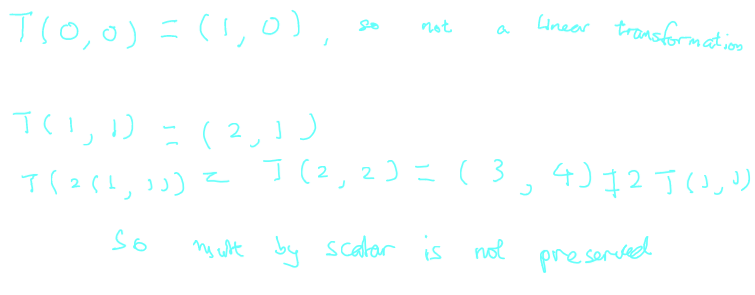 T(0,0) = (1,0), so not a linear transformation
T(1,1) = (2,1)
T(2(1,1)) = T(2,2) = (3,4) ≠ 2T(1,1)
So mult by scalar is not preserved